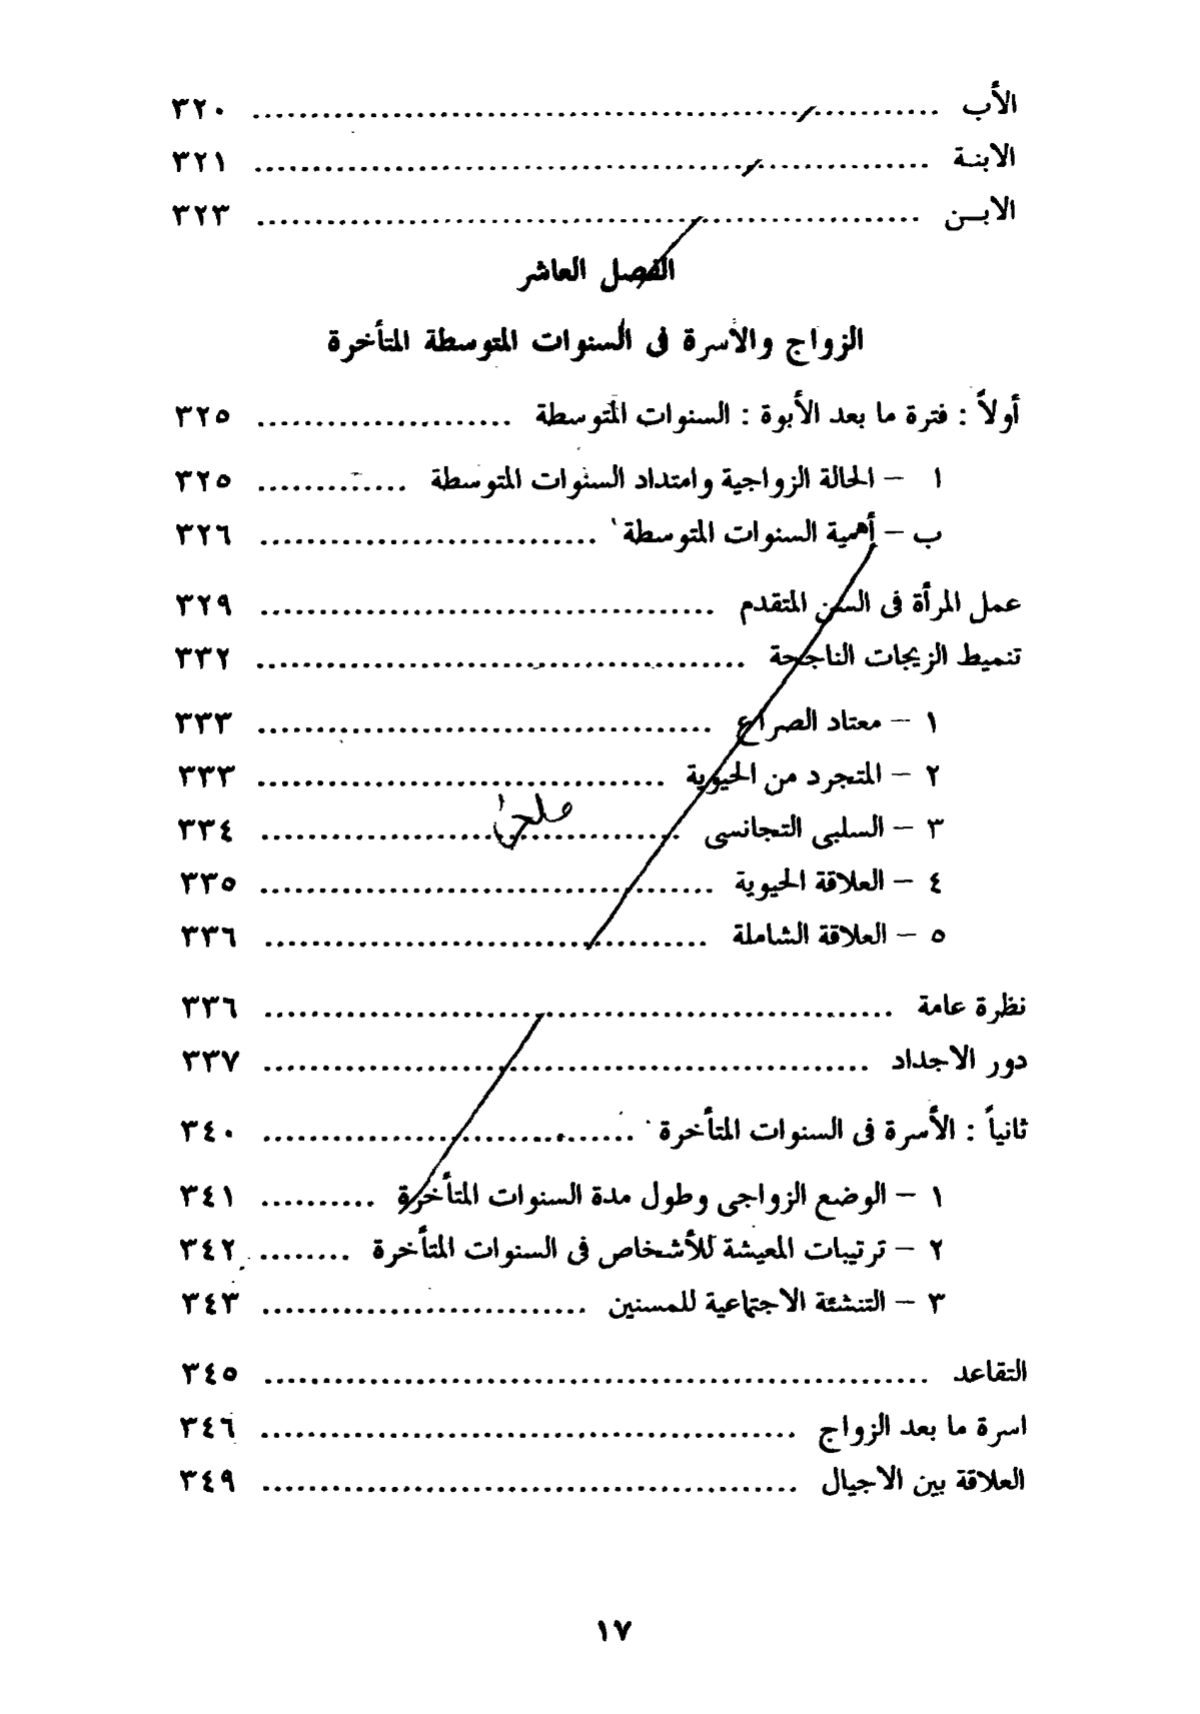 الأب ........ ٣٢٠
الابنة ........ ٣٢١
الابـن ........ ٣٢٣
الفصل العاشر
الزواج والأسرة فى السنوات المتوسطة المتأخرة
أولاً : فترة ما بعد الأبوة : السنوات المتوسطة ........ ٣٢٥
١ – الحالة الزواجية وامتداد السنوات المتوسطة ........ ٣٢٥
ب – أهمية السنوات المتوسطة ........ ٣٢٦
عمل المرأة فى السن المتقدم ........ ٣٢٩
تنميط الزيجات الناجحة ........ ٣٣٢
١ – معتاد الصراع ........ ٣٣٣
٢ – المتجرد من الحيوية ........ ٣٣٣
٣ – السلبى التجانسى ........ ٣٣٤
٤ – العلاقة الحيوية ........ ٣٣٥
٥ – العلاقة الشاملة ........ ٣٣٦
نظرة عامة ........ ٣٣٦
دور الاجداد ........ ٣٣٧
ثانياً : الأسرة فى السنوات المتأخرة ........ ٣٤٠
١ – الوضع الزواجى وطول مدة السنوات المتأخرة ........ ٣٤١
٢ – ترتيبات المعيشة للأشخاص فى السنوات المتأخرة ........ ٣٤٢
٣ – التنشئة الاجتماعية للمسنين ........ ٣٤٣
التقاعد ........ ٣٤٥
اسرة ما بعد الزواج ........ ٣٤٦
العلاقة بين الاجيال ........ ٣٤٩
١٧